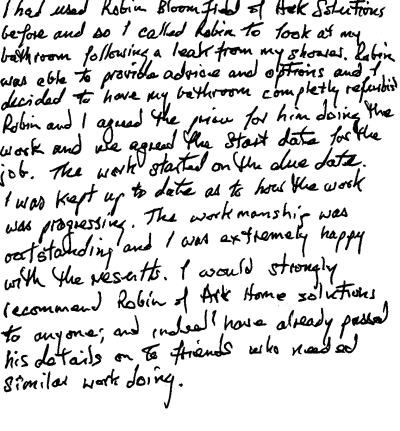 I had used Robin Bloomfield of Ark Solutions
before and so I called Robin to look at my
bathroom following a leak from my shower. Robin
was able to provide advice and options and I
decided to have my bathroom completly refurbish
Robin and I agreed the price for him doing the
work and we agreed the start date for the
job. The work started on the due date.
I was kept up to date as to how the work
was progressing. The workmanship was
outstanding and I was extremely happy
with the results. I would strongly
recommend Robin of Ark Home solutions
to anyone; and indeed I have already passed
his details on to friends who needed
similar work doing.